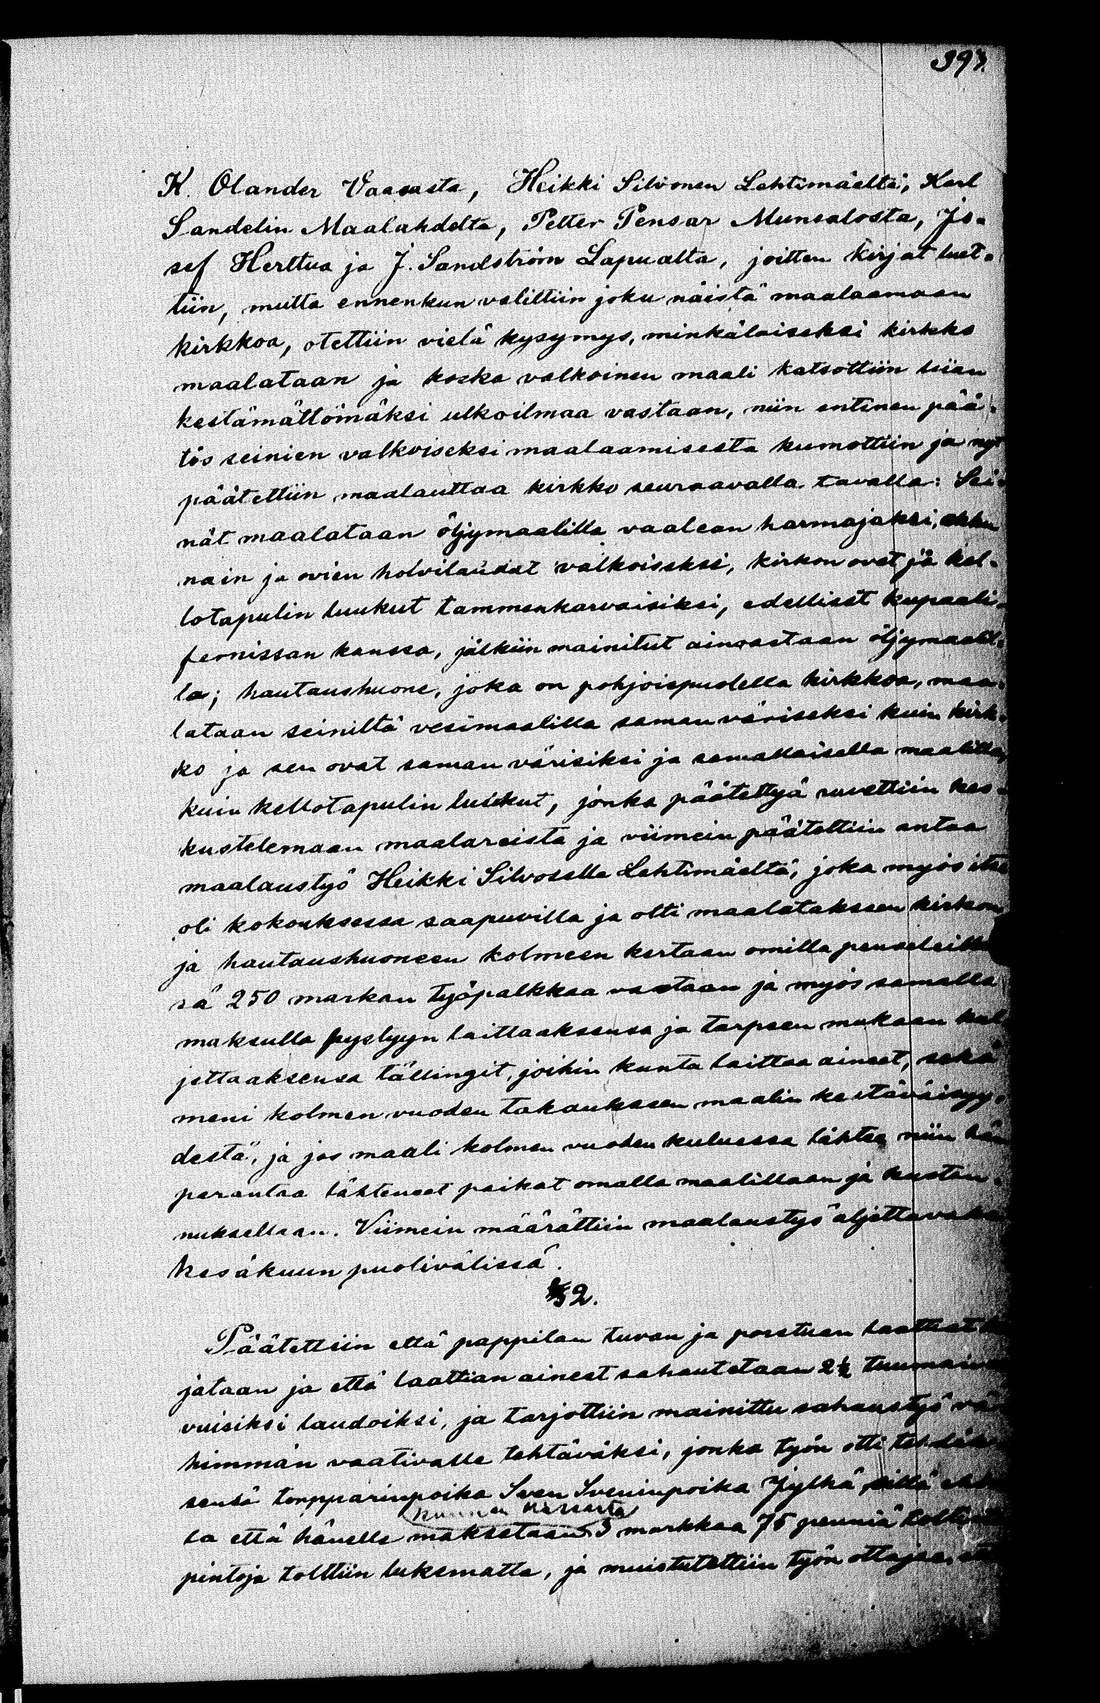 397.
K. Olander Vaasasta, Heikki Silvonen Lehtimäeltä, Karl
Sandelin Maalahdelta, Petter Pensar Munsalosta, Jo-
sef Herttua ja J. Sandström Lapualta, joitten kirjat luet-
tiin, mutta ennenkun valittiin joku näistä maalaamaan
kirkkoa, otettiin vielä kysymys, minkälaiseksi kirkko
maalataan ja koska valkoinen maali katsottiin liian
kestämättömäksi ulkoilmaa vastaan, niin entinen pää-
tös seinien valkoiseksi maalaamisesta kumottiin ja nyt
päätettiin maalauttaa kirkko seuraavalla tavalla: Sei-
nät maalataan öljymaalilla vaalean harmajaksi, akku
nain ja ovien holvilaudat valkoiseksi, kirkon ovet ja kel-
lotapulin luukut tammenkarvaisiksi, edelliset kupaali-
fernissan kanssa, jälkiin mainitut ainoastaan öljymaalil-
la; hautaushuone, joka on pohjoispuolella kirkkoa, maa-
lataan seiniltä vesimaalilla saman väriseksi kuin kirk-
ko ja sen ovat saman värisiksi ja samallaisella maalilla,
kuin kellotapulin luukut, jonka päätettyä ruvettiin kes-
kustelemaan maalareista ja viimein päätettiin antaa
maalaustyö Heikki Silvoselle Lehtimäeltä, joka myös itse
oli kokouksessa saapuvilla ja otti maalataksensa kirkon
ja hautaushuoneen kolmeen kertaan omilla penseleillä
sä 250 markan työpalkkaa vastaan ja myös samalla
maksulla pystyyn laittaaksensa ja tarpeen mukaan kul
jettaaksensa tällingit, joihin kunta laittaa aineet, sekä
meni kolmen vuoden takaukseen maalin kestäväisyy-
destä, ja jos maali kolmen vuoden kuluessa lähtee niin hän
parantaa lähteneet paikat omalla maalillaan ja kustan-
nuksellaan. Viimein määrättiin maalaustyö aljettavaksi
Kesäkuun puolivälissä.
§ 2.
Päätettiin että pappilan tuvan ja porstuan laattiat
jataan ja että laattian aineet sahautetaan 2½ tuuman
vuisiksi laudoiksi, ja tarjottiin mainittu sahaustyö vä
himmän vaativalle tehtäväksi, jonka työn otti tehdäk
sensä torpparinpoika Sven Sveninpoika Jylhä, sillä
la että hänelle maksetaan 3 markkaa 75 penniä
pintoja tolttiin lukematta, ja muistutettiin työn ottajaa,